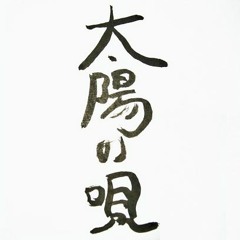 太陽の唄